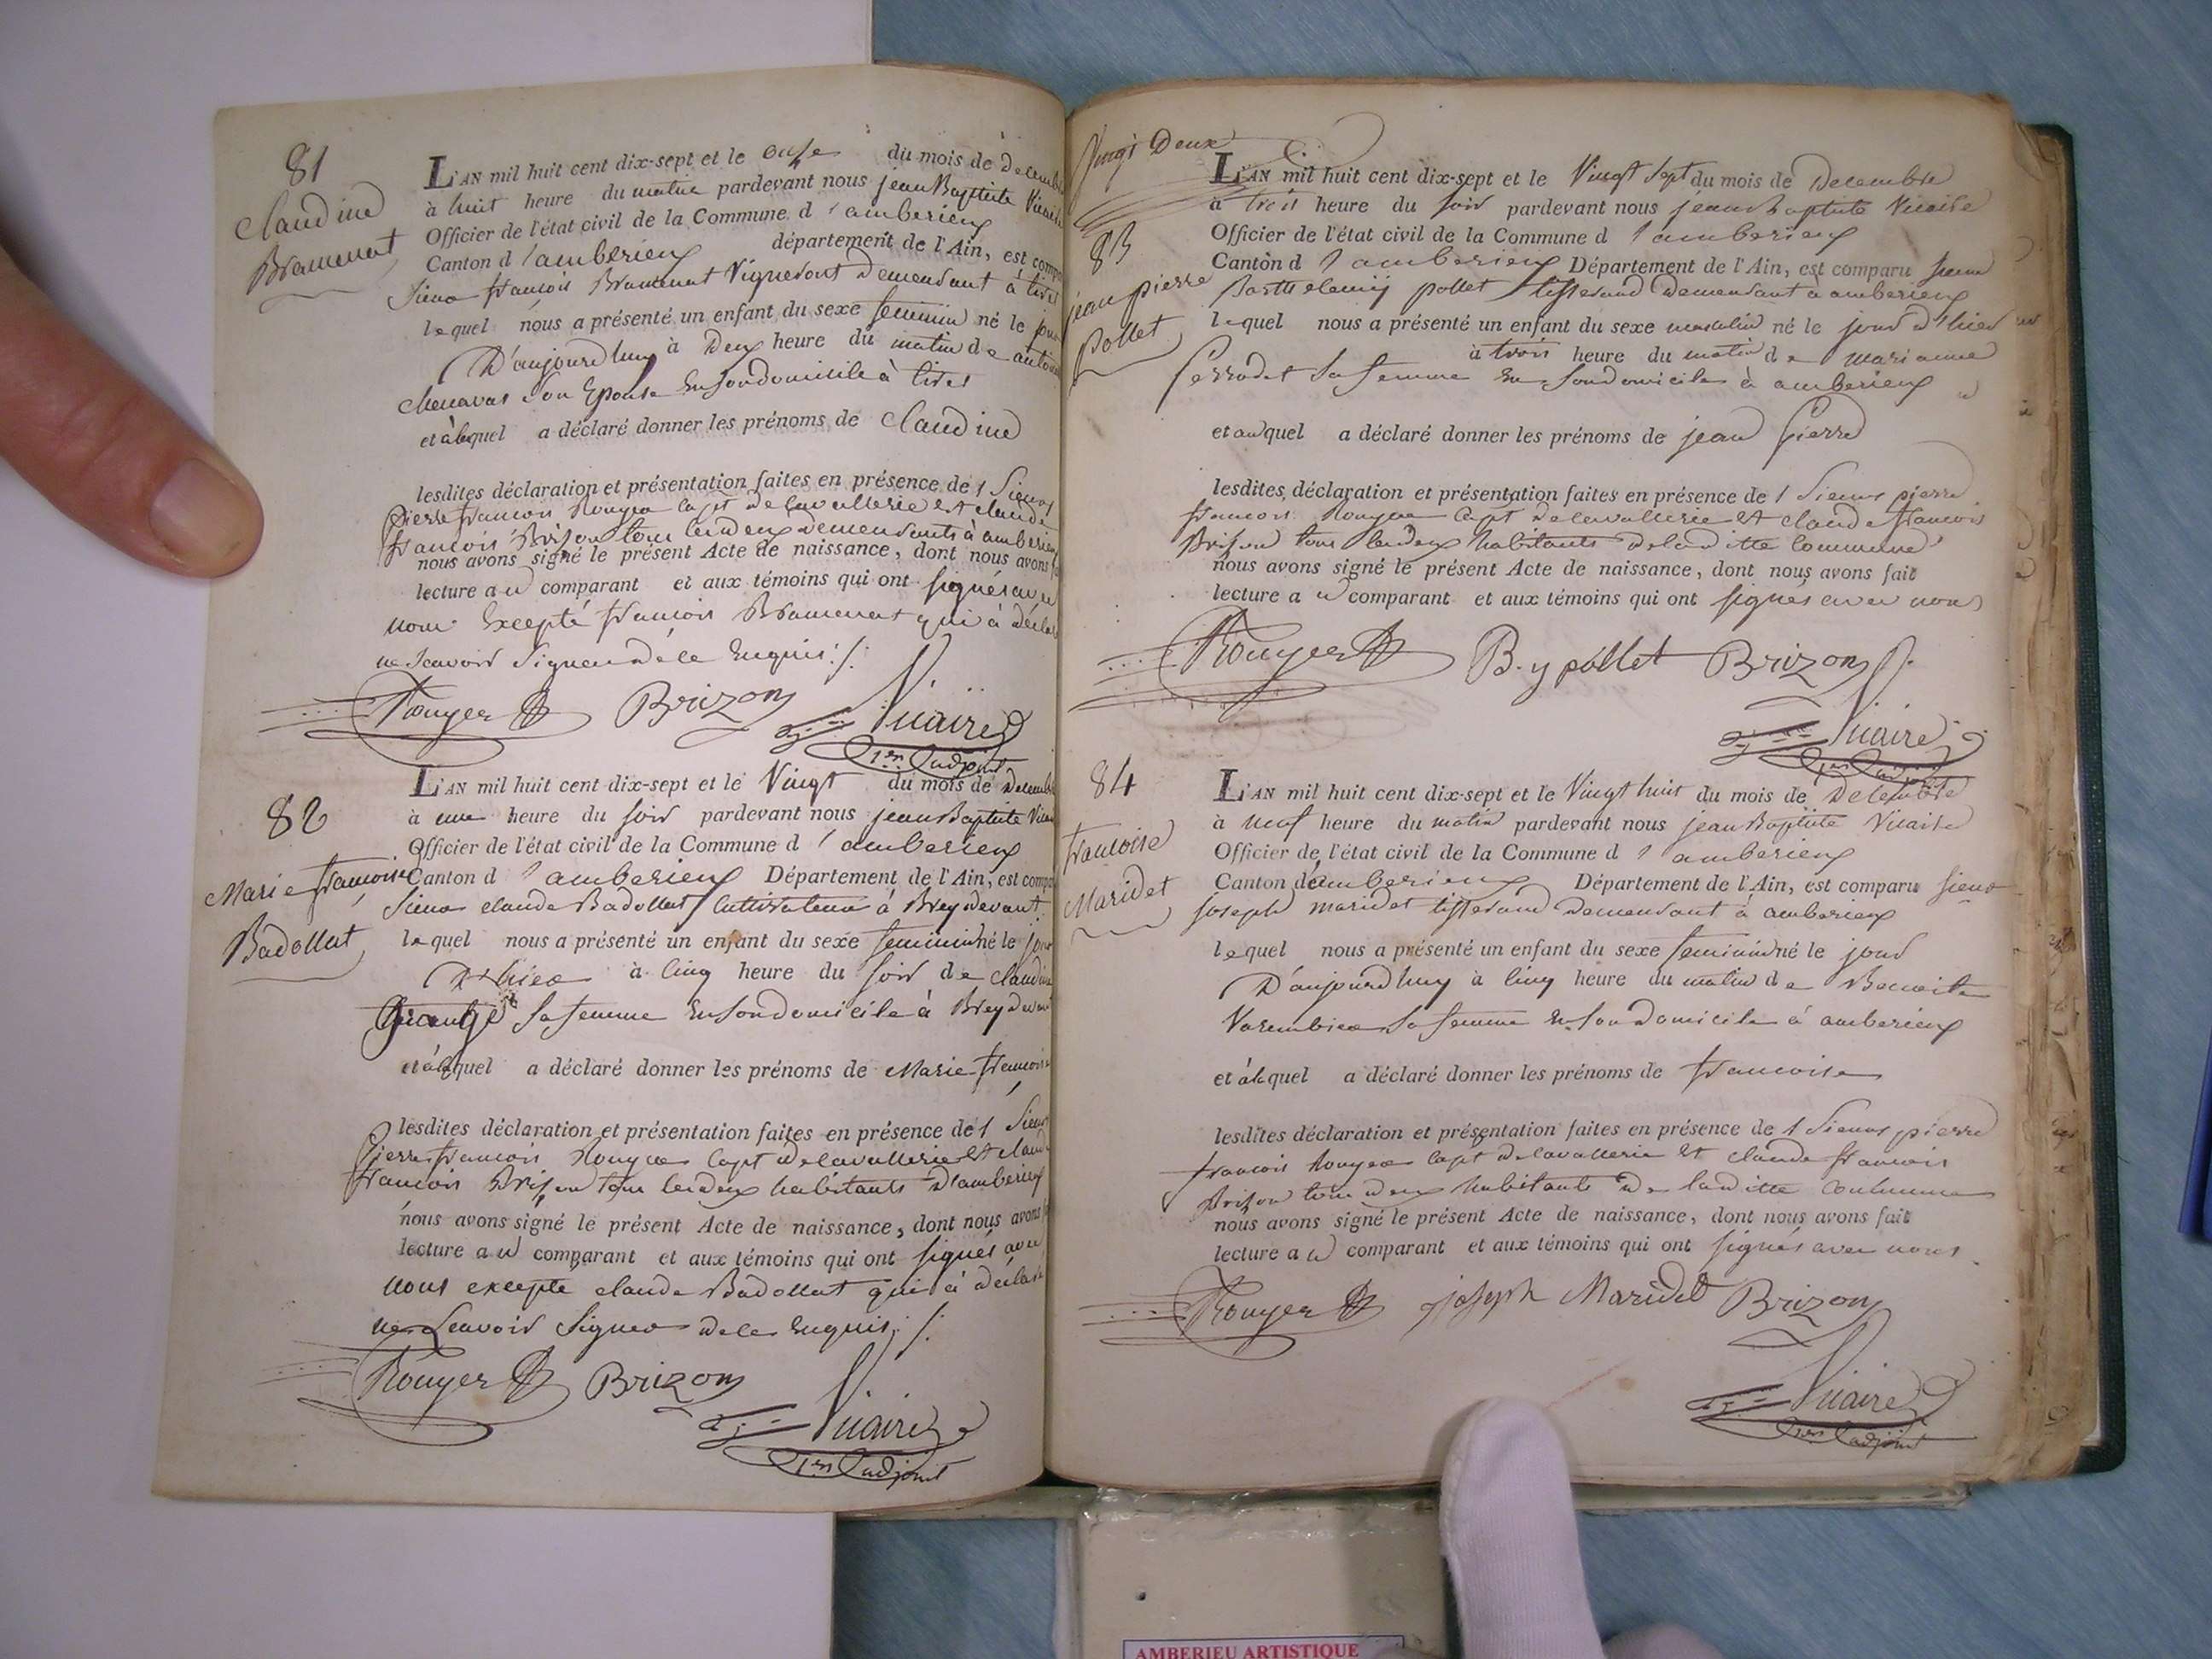 81
Claudine
Bramerat
L'AN mil huit cent dix-sept et le onze du mois de Decemb
à huit heure du matin pardevant nous jean Baptiste Vicaire
Officier de l'état civil de la Commune d'amberieux
Canton d'amberieux département de l'Ain, est compa
Sieur francois Bramerat Vigneront Demeurant à tiret
lequel nous a présenté un enfant du sexe feminin né le jour
D'aujourdhuy à Deux heure du matin de antoi
son Epouse En son domicile à tiret
et à laquel a déclaré donner les prénoms de Claudine
lesdites déclaration et présentation faites en présence des Sieurs
pierre francois Rouyer Capt de Cavallerie et claude
francois Brison tous les deux demeurants à amberieux
nous avons signé le présent Acte de naissance, dont nous avons fa
lecture au comparant et aux témoins qui ont signés avec
nous Excepté francois Bramerat qui à décla
ne Scavoir Signer de ce Enquis ./.
Rouyer Brizon Vicaire
1er adjoint
82
Marie francoise
Badollat
L'AN mil huit cent dix-sept et le Vingt du mois de Decemb
à une heure du soir pardevant nous jean Baptiste Vicai
Officier de l'état civil de la Commune d'amberieux
Canton d'amberieux Département de l'Ain, est compa
Sieur claude Badollat Cultivateur à Breydevant
lequel nous a présenté un enfant du sexe feminin né le jour
D'hier à cinq heure du soir de claudine
sa femme En son domicile à Breydevant
et à laquel a déclaré donner les prénoms de Marie francoise
lesdites déclaration et présentation faites en présence des Sieur
Pierre francois Rouyer Capt de cavallerie et claude
francois Brison tous les deux habitants D'amberieux
nous avons signé le présent Acte de naissance, dont nous avons
lecture au comparant et aux témoins qui ont signés avec
nous excepté claude Badollat qui à déclaré
ne Scavoir Signer de ce Enquis ./.
Rouyer Brizon Vicaire
1er adjoint
Vingt Deux
83
jean pierre
pollet
L'AN mil huit cent dix-sept et le Vingt Sept du mois de Decembre
à trois heure du soir pardevant nous jean Baptiste Vicaire
Officier de l'état civil de la Commune d'amberieux
Canton d'amberieux Département de l'Ain, est comparu Sieur
Barthelemy pollet tisserand Demeurant à amberieux
lequel nous a présenté un enfant du sexe masculin né le jour d'hier
à trois heure du matin de marianne
Perrodet Sa femme En son domicile à amberieux
et auquel a déclaré donner les prénoms de jean Pierre
lesdites déclaration et présentation faites en présence des Sieurs pierre
francois Rouyer Capt de cavallerie et claude francois
Brison tous les deux habitants de laditte Commune
nous avons signé le présent Acte de naissance, dont nous avons fait
lecture au comparant et aux témoins qui ont signés avec nous
Rouyer B. y pollet Brizon
Vicaire
1er adjoint
84
francoise
Maridet
L'AN mil huit cent dix-sept et le Vingt huit du mois de Decembre
à neuf heure du matin pardevant nous jean Baptiste Vicaire
Officier de l'état civil de la Commune d'amberieux
Canton d'amberieux Département de l'Ain, est comparu Sieur
joseph maridet tisserand Demeurant à amberieux
lequel nous a présenté un enfant du sexe feminin né le jour
D'aujourdhuy à cinq heure du matin de Benoite
Varembier Sa femme En son Domicile à amberieux
et à laquel a déclaré donner les prénoms de francoise
lesdites déclaration et présentation faites en présence des Sieurs pierre
francois Rouyer Capt de cavallerie et claude francois
Brison tous deux habitants de laditte Commune
nous avons signé le présent Acte de naissance, dont nous avons fait
lecture au comparant et aux témoins qui ont signés avec nous
Rouyer joseph Maridet Brizon
Vicaire
1er adjoint
AMBERIEU ARTISTIQUE